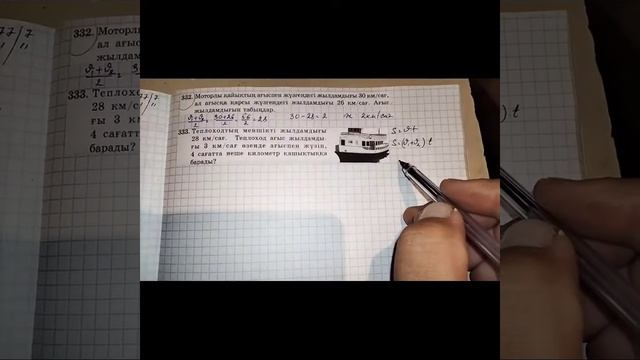 332. Моторлы қайықтың ағыспен жүзгендегі жылдамдығы 30 км/сағ,
ал ағысқа қарсы жүзгендегі жылдамдығы 26 км/сағ. Ағыс
жылдамдығын табыңдар.
(ϑ₁+ϑ₂)/2 = (30+26)/2 = 56/2 = 28 30-28=2 ж 2км/сағ
333. Теплоходтың меншікті жылдамдығы
28 км/сағ. Теплоход ағыс жылдамды-
ғы 3 км/сағ өзенде ағыспен жүзіп,
4 сағатта неше километр қашықтыққа
барады?
S=ϑt
S=(ϑ₁+ϑ₂)t